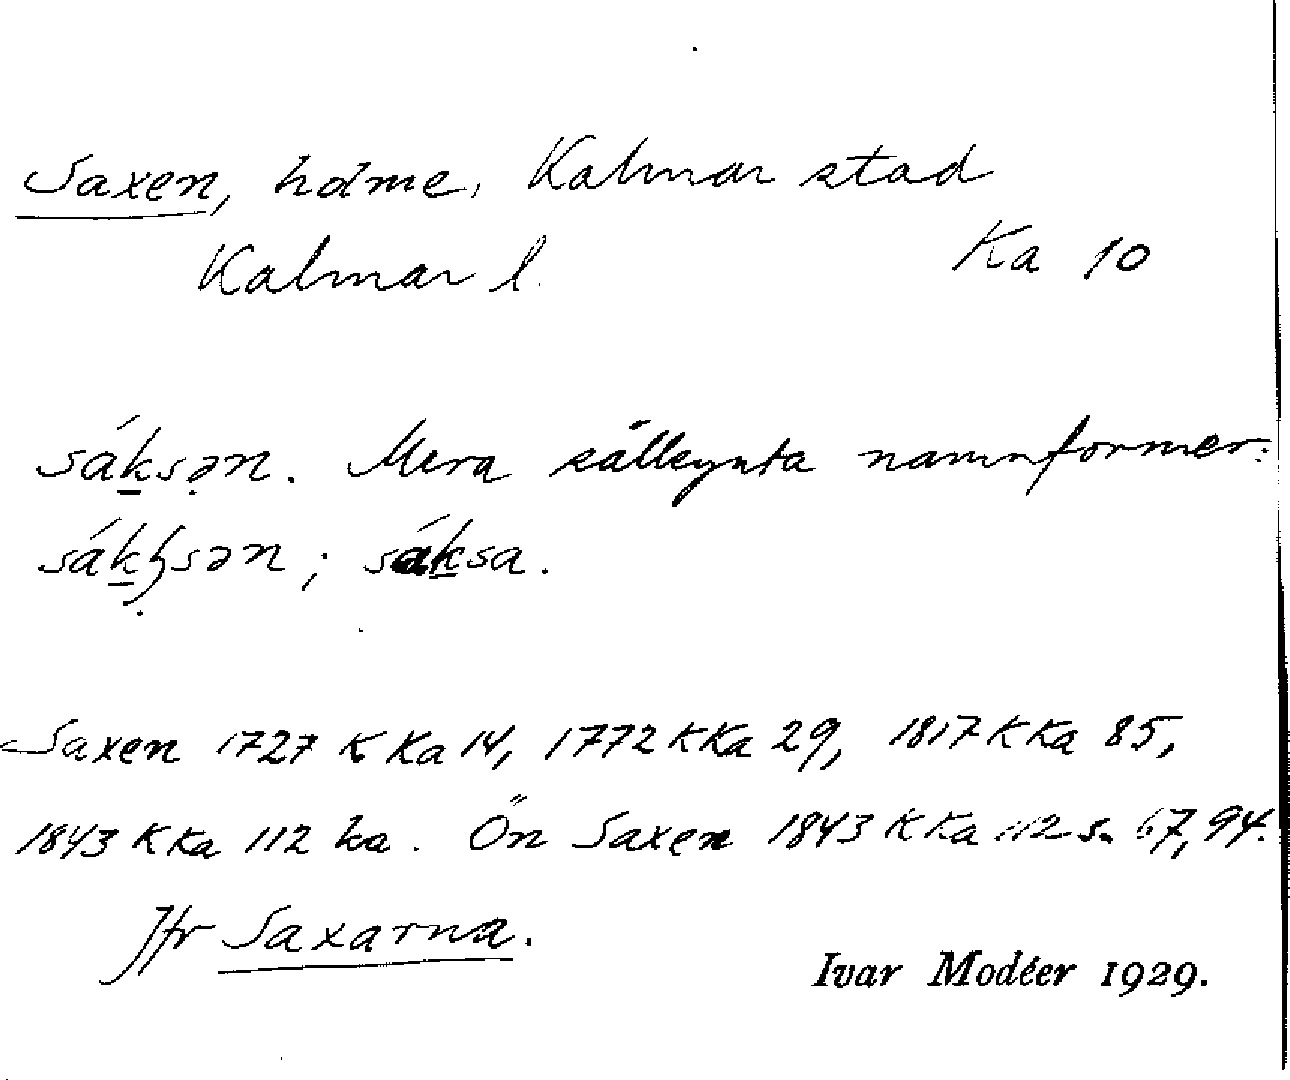 Saxen, holme, Kalmar stad
Kalmar l. Ka 10
sáksən. Mera sällsynta namnformer:
sákħsən; sáksa.
Saxen 1727 K Ka 14, 1772 K Ka 29, 1817 K Ka 85,
1843 K Ka 112 ka. Ön Saxen 1843 K Ka 112 s. 67, 94.
Jfr Saxarna.
Ivar Modéer 1929.